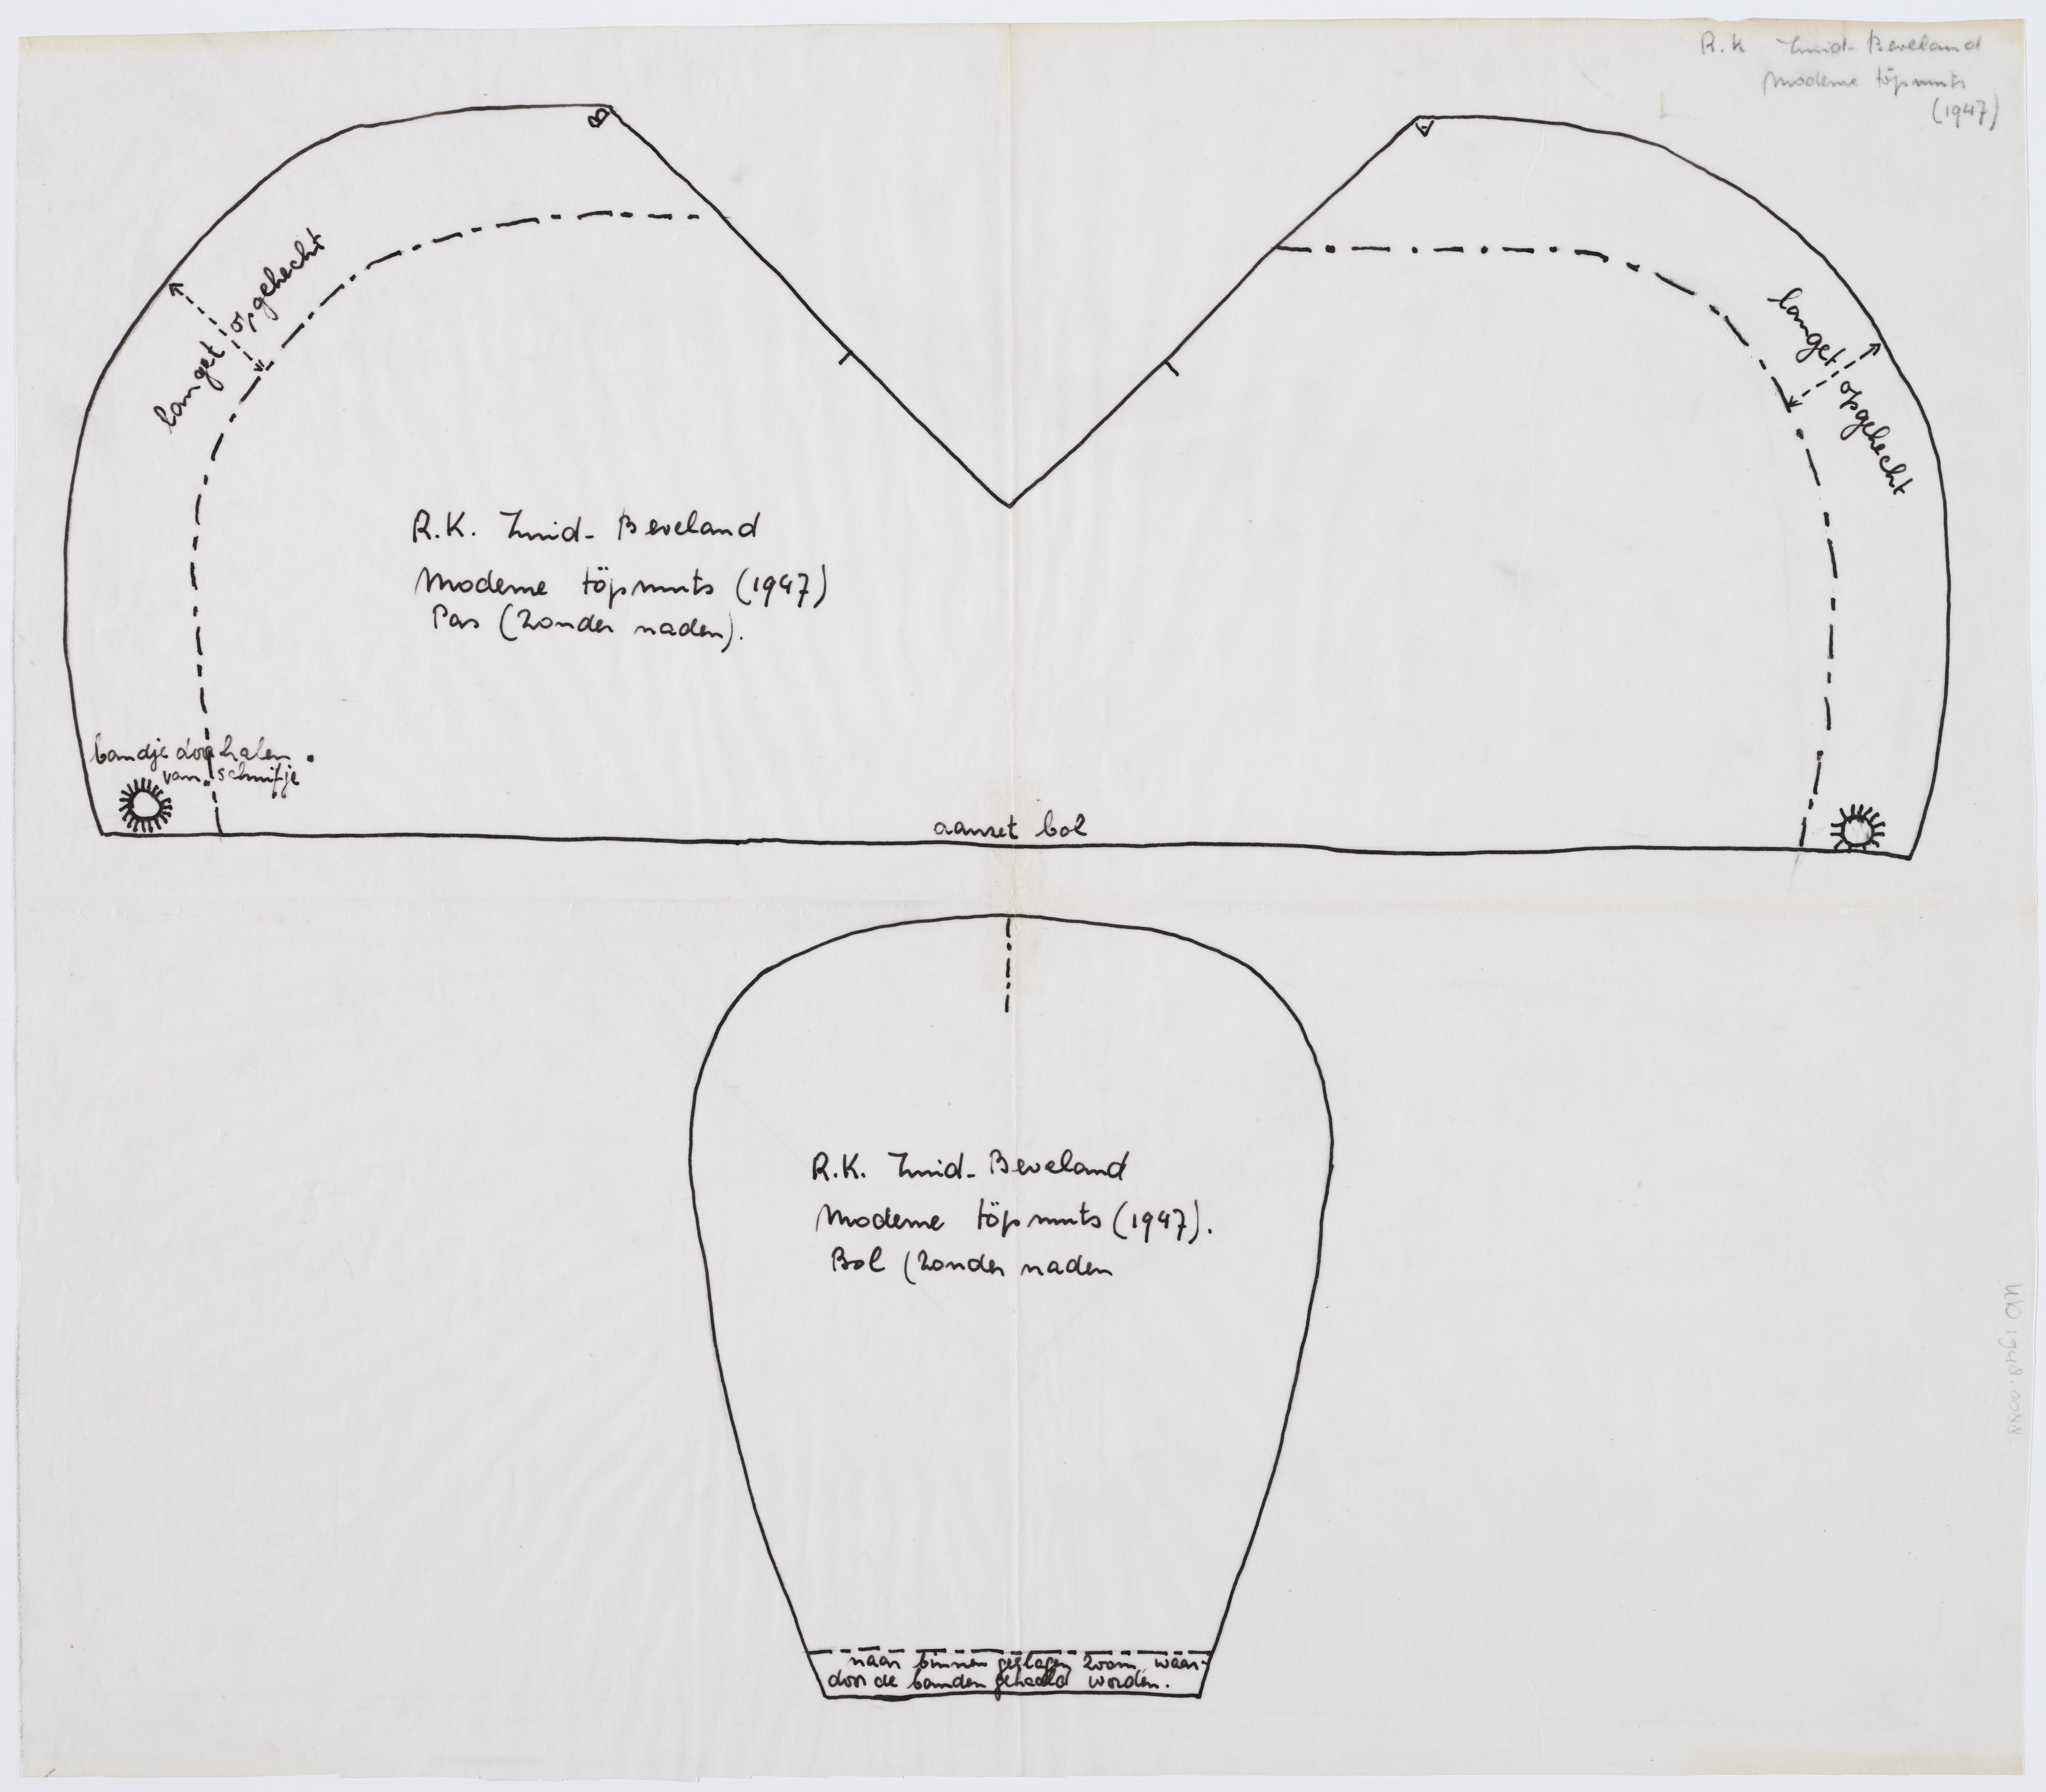 R.K Zuid-Beveland
Moderne töpmuts
(1947)
B
A
langet opgehecht
langet opgehecht
R.K. Zuid-Beveland
Moderne töpmuts (1947)
Pas (zonder naden).
bandje doorhalen
van schuifje
aanzet bol
R.K. Zuid-Beveland
Moderne töpmuts (1947).
Bol (zonder naden
naar binnen geslagen zoom, waar-
door de banden gehaald worden.